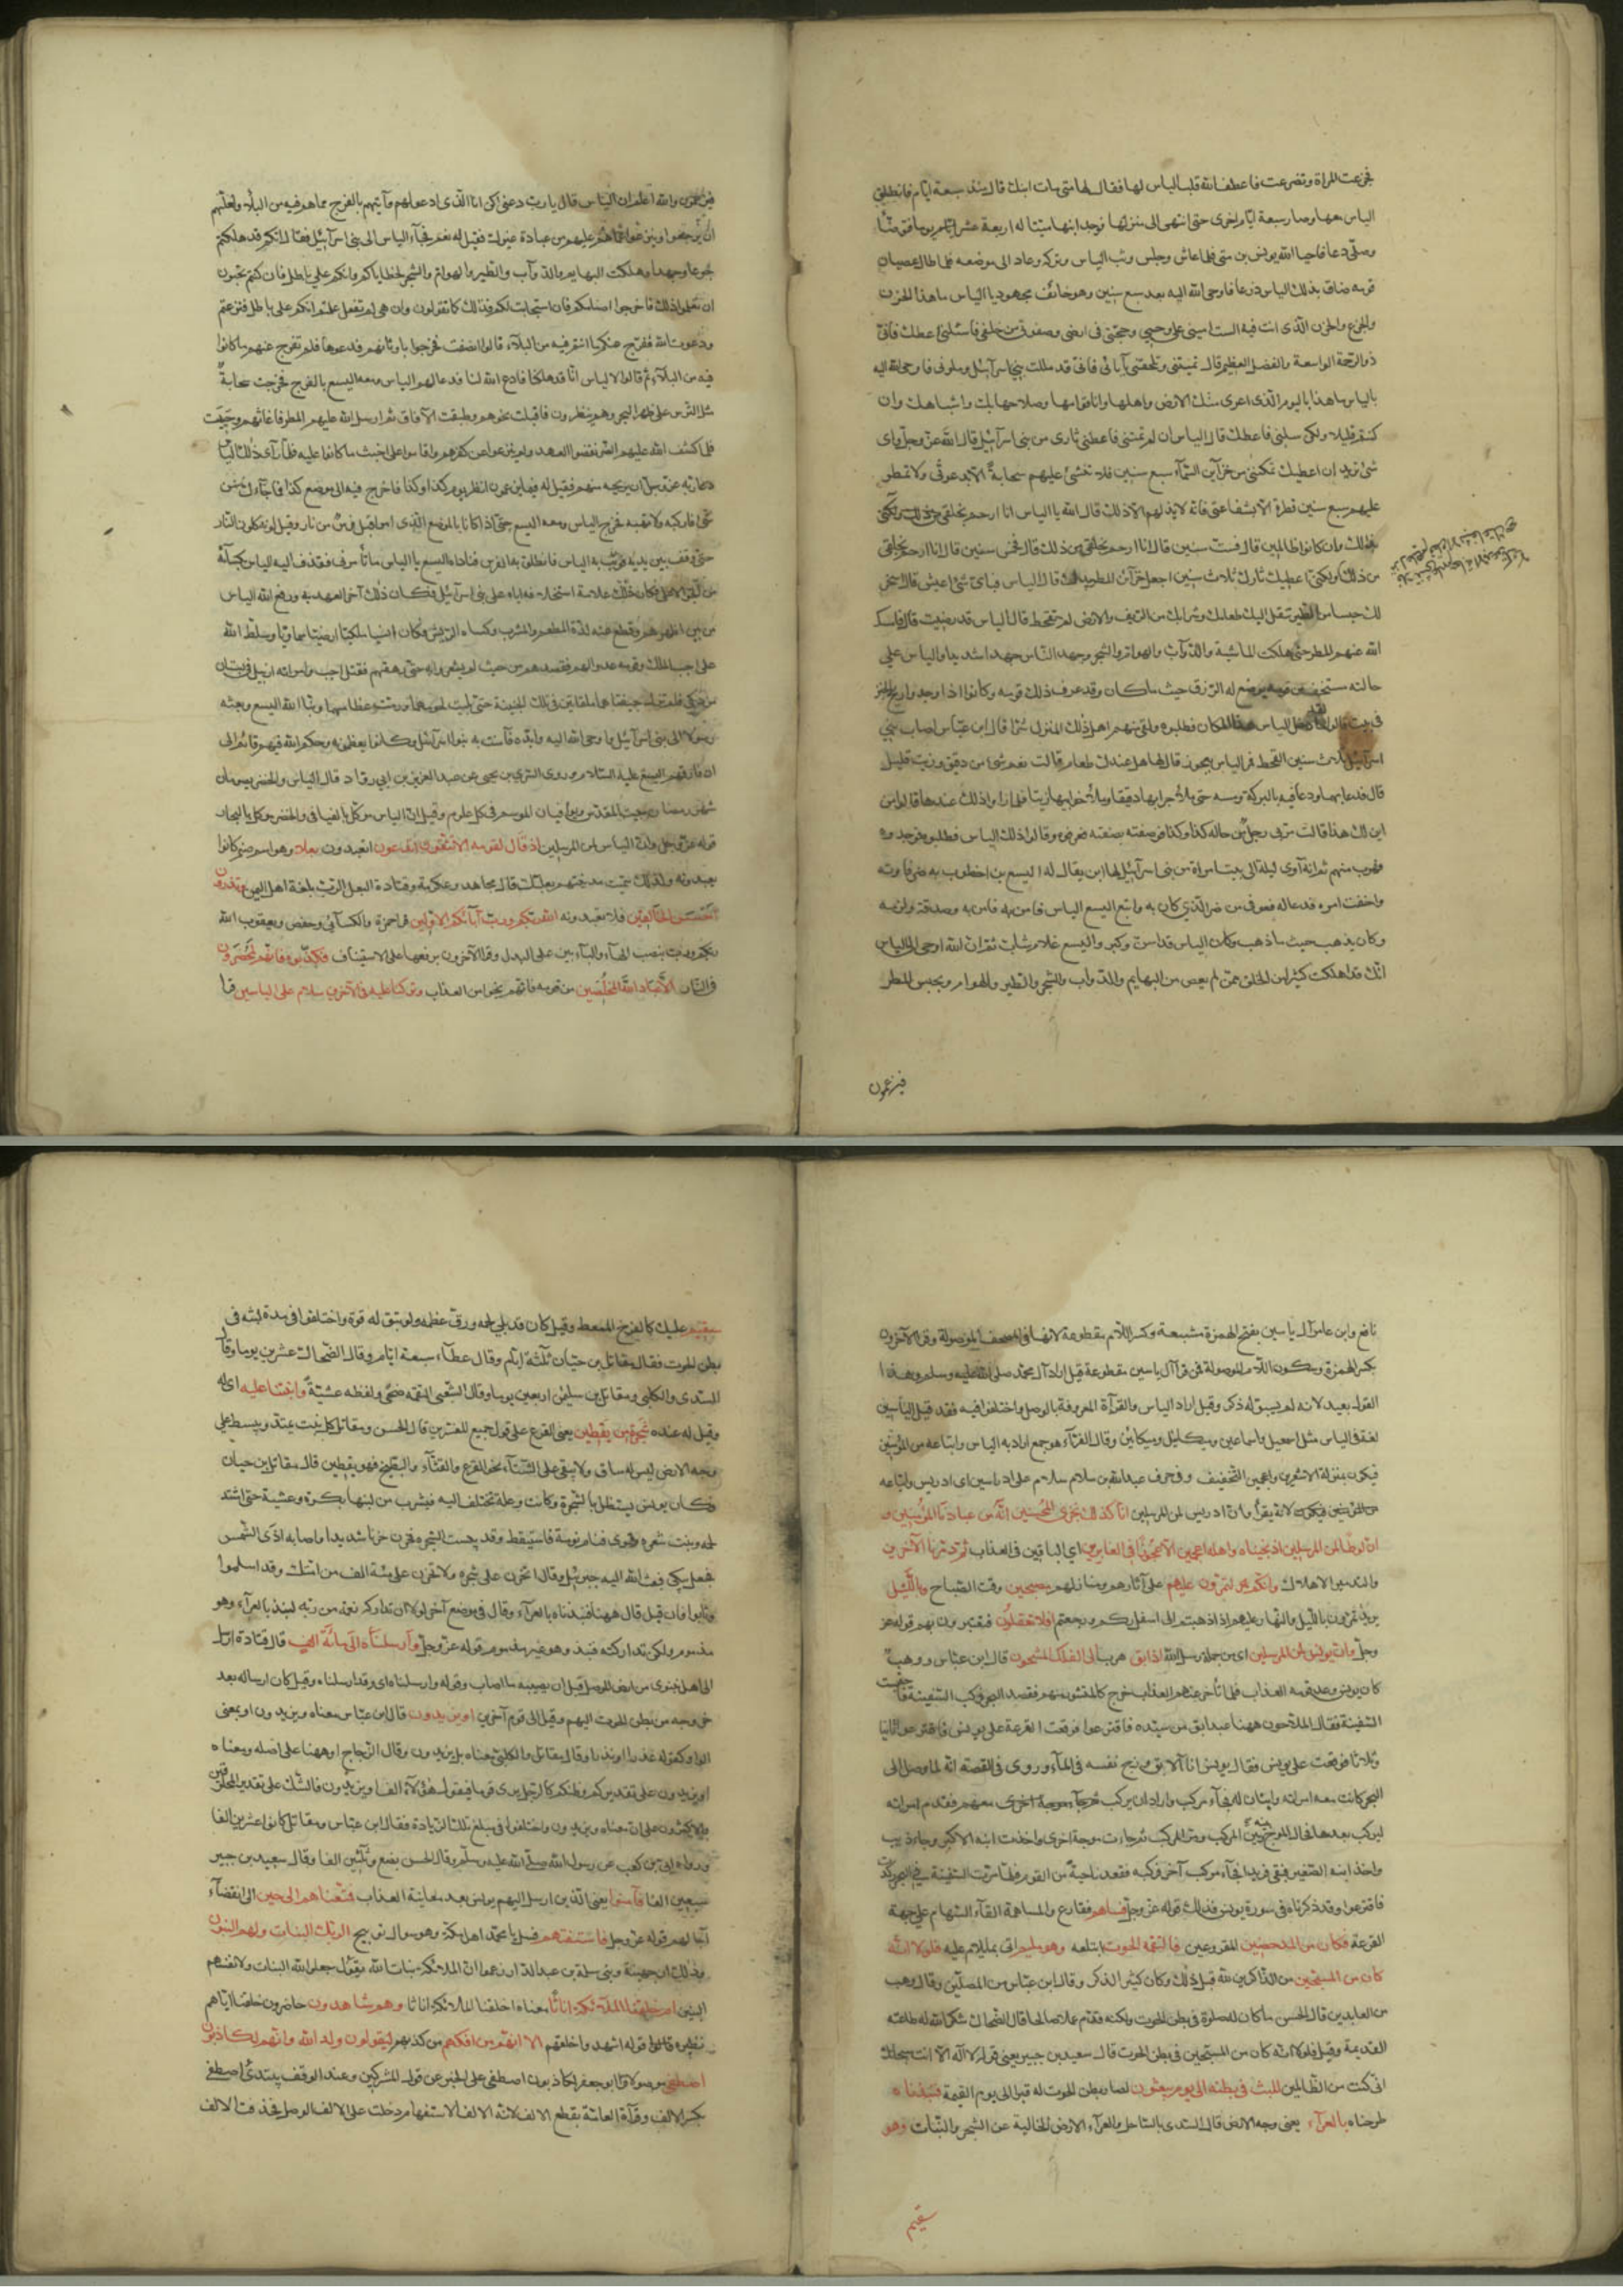 فجزعت المراة وتضرعت فاعطف الله قلب الياس لها فقال لها متى مات ابنك قالت منذ سبعة ايام فانطلق
الياس معها وسار سبعة ايام اخرى حتى انتهى الى منزلها فوجد ابنها ميتا له اربعة عشر يوما فتوضّأ
وصلّى ودعا فاحيا الله يونس بن متى فلما عاش وجلس وثب الياس وتركه وعاد الى موضعه فلما طال عصيان
قومه ضاق بذلك الياس ذرعا فاوحى الله اليه بعد سبع سنين وهو خائف مجهود يا الياس ما هذا الحزن
والجزع الذى انت فيه الست امينى على وحيى وحجتى فى ارضى وصفوتى من خلقى فاسئلنى اعطك فانّى
ذو الرحمة الواسعة والفضل العظيم قال تميتنى وتلحقنى بآبائى فانّى قد مللت بنى اسرآئيل وملونى فاوحى الله اليه
يا الياس ما هذا باليوم الذى اعرى منك الارض واهلها وانما قوامها وصلاحها بك واشباهك وان
كنتم قليلا ولكن سلنى فاعطك قال الياس ان لم تمتنى فاعطنى ثارى من بنى اسرآئيل قال الله عزّ وجلّ واى
شئ تريد ان اعطيك قال تمكننى من خزآين السّمآء سبع سنين فلا تنشئ عليهم سحابة الا بدعوتى ولا تمطر
عليهم سبع سنين قطرة الا بشفاعتى فانه لا يذلهم الا ذلك قال الله يا الياس انا ارحم بخلقى من ذلك
وان كانوا ظالمين قال فستّ سنين قال انا ارحم بخلقى من ذلك قال فخمس سنين قال انا ارحم بخلقى
من ذلك ولكنى اعطيك ثارك ثلاث سنين اجعل خزآئن المطر بيدك قال الياس فباى شئ اعيش قال اسخر
لك جيشا من الطير تنقل اليك طعامك وشرابك من الريف والارض لم تقحط قال الياس قد رضيت قال فامسك
الله عنهم المطر حتى هلكت الماشية والدّوآب والهوام والشجر وجهد الناس جهدا شديدا والياس على
حالته مستخف من قومه يوضع له الرزق حيث ما كان وقد عرف ذلك قومه وكانوا اذا وجدوا ريح الخبز
فى بيت قالوا لقد دخل الياس هذا المكان فطلبوه ولقى منهم اهل ذلك المنزل شرّا قال ابن عبّاس اصاب بنى
اسرآئيل ثلاث سنين القحط فمر الياس بعجوز قال لها هل عندك طعام قالت نعم شئ من دقيق وزيت قليل
قال فدعا بهما ودعا فيه بالبركة ومسه حتى ملأ جرابها دقيقا وملأ خوابيها زيتا فلما رأوا ذلك عندها قالوا من
اين لك هذا قالت مرّ بى رجل من حاله كذا وكذا فوصفته بصفته فعرفوه وقالوا ذلك الياس فطلبوه فوجدوه
فهرب منهم ثم انه آوى ليلة الى بيت امراة من بنى اسرآئيل لها ابن يقال له اليسع بن اخطوب به ضر فآوته
واخفت امره فدعا له فعوفى من ضر الذي كان به واتبع اليسع الياس فامن به وصدقه ولزمه
وكان يذهب حيث ما ذهب وكان الياس قد اسن وكبر واليسع غلام شاب ثم ان الله اوحى الى الياس
انّك قد اهلكت كثيرا من الخلق ممن لم يعص من البهايم والدّواب والشجر والطير والهوام بحبس المطر
فيزعمون
فيزعمون والله اعلم ان الياس قال يا رب دعنى اكن انا الذى ادعو لهم وآتيهم بالفرج مما هم فيه من البلآء ولعلّهم
ان يرجعوا وينزعوا عما هم عليه من عبادة غيرك فقيل له نعم فجآء الياس الى بنى اسرآئيل فقال انكم قد هلكتم
جوعا وجهدا وهلكت البهايم والدّوآب والطير والهوام والشجر لخطاياكم وانكم على باطل فان كنتم تحبّون
ان تعلموا ذلك فاخرجوا اصنامكم فان استجابت لكم فذلك كما تقولون وان هى لم تفعل علمتم انكم على باطل فنزعتم
ودعوت الله ففرّج عنكم ما انتم فيه من البلآء قالوا انصفت فخرجوا باوثانهم فدعوها فلم تفرج عنهم ما كانوا
فيه من البلآء ثم قالوا لالياس انّا قد هلكنا فادع الله لنا فدعا لهم الياس ومعه اليسع بالفرج فخرجت سحابة
مثل الترس على ظهر البحر وهم ينظرون فاقبلت نحوهم وطبقت الآفاق ثم ارسل الله عليهم المطر فاغاثهم وحييت
فلما كشف الله عليهم الضر نقضوا العهد ولم ينزعوا عن كفرهم واقاموا على اخبث ما كانوا عليه فلمّا رآى ذلك الياس
دعا ربه عزّ وجلّ ان يريحه منهم فقيل له فيما يزعمون انظر يوم كذا وكذا فاخرج فيه الى موضع كذا فما جآءك من
شئ فاركبه ولا تهبه فخرج الياس ومعه اليسع حتى اذا كانا بالموضع الذى امر اقبل فرس من نار وقيل لونه كلون النار
حتى وقف بين يديه فوثب به الياس فانطلق به الفرس فناداه اليسع يا الياس ما تأمرنى فقذف اليه الياس بكسآئه
من الجو الاعلى فكان ذلك علامة استخلافه اياه على بنى اسرآئيل فكان ذلك آخر العهد به ورفع الله الياس
من بين اظهرهم وقطع عنه لذّة المطعم والمشرب وكساه الريش وكان انسيا ملكيا ارضيا سماويا وسلّط الله
على اجب الملك وقومه عدوا لهم فقصدهم من حيث لم يشعروا به حتى رهقهم فقتل اجب وامراته ازبيل فى بستان
مزدكى فلم تزل جيفتاهما ملقاتين فى تلك الجنينة حتى بليت لحومهما ورمّت عظامهما ونبّا الله اليسع وبعثه
رسولا الى بنى اسرآئيل واوحى الله اليه وايّده فآمنت به بنو اسرآئيل وكانوا يعظمونه وحكم الله فيهم قآئم الى
ان فارقهم اليسع عليه السّلام وروى السّرى بن يحيى عن عبد العزيز بن ابى رواد قال الياس والخضر يصومان
شهر رمضان ببيت المقدّس ويوافيان الموسم فى كل عام وقيل انّ الياس موكل بالفيافى والخضر موكل بالبحار
قوله عزّ وجلّ وانّ الياس لمن المرسلين اذ قال لقومه الا تتّقون اتدعون اتعبدون بعلا وهو اسم صنم كانوا
يعبدونه ولذلك سمّيت مدينتهم بعلبكّ قال مجاهد وعكرمة وقتادة البعل الرّبّ بلغة اهل اليمن وتذرون
احسن الخالقين فلا تعبدونه الله ربّكم وربّ آبائكم الاوّلين قرا حمزة والكسآئى وحفص ويعقوب الله
ربّكم وربّ بنصب الهآء والبآءين على البدل وقرا الآخرون برفعها على الاستيناف فكذّبوه فانّهم لمحضرون
فى النّار الّا عباد الله المخلصين من قومه فانّهم نجوا من العذاب وتركنا عليه فى الآخرين سلام على الياسين قرا
نافع وابن عامر آل ياسين بفتح الهمزة مشبعة وكسر اللّام مقطوعة لانها فى المصحف مفصولة وقرا الآخرون
بكسر الهمزة وسكون اللّام الموصولة فمن قرا آل ياسين مقطوعة قيل اراد آل محمّد صلى الله عليه وسلم وهذا
القول بعيد لانه لم يسبق له ذكر وقيل اراد الياس والقرآءة المعروفة بالوصل واختلفوا فيه فقد قيل الياسين
لغة فى الياس مثل اسمعيل واسماعين وميكائيل وميكائين وقال الفرّآء هو جمع اراد به الياس واتباعه من المؤمنين
فيكون بمنزلة الاشعرين والاعجمين بالتخفيف وفى حرف عبد الله بن مسعود سلام على ادراسين اى ادريس واتباعه
لانه يقرأ وانّ ادريس لمن المرسلين انّا كذلك نجزى المحسنين انّه من عبادنا المؤمنين و
انّ لوطا لمن المرسلين اذ نجّيناه واهله اجمعين الّا عجوزا فى الغابرين اى الباقين فى العذاب ثمّ دمّرنا الآخرين
والتدمير الاهلاك وانّكم لتمرّون عليهم على آثارهم ومنازلهم مصبحين وقت الصّباح وباللّيل
يريد تمرّون باللّيل والنّهار عليهم اذا ذهبتم الى اسفاركم ورجعتم افلا تعقلون فتعتبرون بهم قوله عزّ
وجلّ وانّ يونس لمن المرسلين اى من جملة رسل الله اذ ابق هرب الى الفلك المشحون قال ابن عبّاس ووهب
كان يونس وعد قومه العذاب فلما تأخر عنهم العذاب خرج كالمنشوز منهم فقصد البحر فركب السّفينة فاحتبست
السّفينة فقال الملّاحون ههنا عبد ابق من سيّده فاقترعوا فوقعت القرعة على يونس فاقترعوا ثانيا
وثلاثا فوقعت على يونس فقال يونس انا الآبق وزج نفسه فى المآء وروى فى القصّة انّه لما وصل الى
البحر كانت معه امراته وابنان له فجآء مركب واراد ان يركب معهم فقدم امراته
ليركب بعدها فحال الموج بينه وبين المركب ومرّ المركب ثم جاءت موجة اخرى واخذت ابنه الاكبر وجاء ذيب
واخذ ابنه الصّغير فبقى فريدا فجآء مركب آخر فركبه فقعد ناحية من القوم فلما مرّت السّفينة فى البحر ركدت
فاقترعوا وقد ذكرناه فى سورة يونس فذلك قوله عزّ وجلّ فساهم فقارع والمساهمة القآء السّهام على جهة
القرعة فكان من المدحضين المقروعين فالتقمه الحوت ابتلعه وهو مليم اى بما يلام عليه فلولا انّه
كان من المسبّحين من الذّاكرين لله قبل ذلك وكان كثير الذكر وقال ابن عبّاس من المصلّين وقال وهب
من العابدين قال الحسن ما كان له صلوة فى بطن الحوت ولكنّه قدّم عملا صالحا قال الضّحاك شكر الله له طاعته
القديمة وقيل فلولا انه كان من المسبّحين فى بطن الحوت قال سعيد بن جبير يعنى قوله لا اله الّا انت سبحانك
انّى كنت من الظّالمين للبث فى بطنه الى يوم يبعثون لصار بطن الحوت له قبرا الى يوم القيمة فنبذناه
طرحناه بالعرآء يعنى وجه الارض قال السّدى بالسّاحل والعرآء الارض الخالية عن الشجر والنّبات وهو
سقيم
سقيم عليل كالفرخ الممعط وقيل كان قد بلى لحمه ورقّ عظمه ولم تبق له قوة واختلفوا فى مدة لبثه فى
بطن الحوت فقال مقاتل بن حيّان ثلثة ايّام وقال عطآء سبعة ايام وقال الضّحاك عشرين يوما وقال
السّدى والكلبى ومقاتل بن سليمن اربعين يوما وقال الشّعبى التقمه ضحى ولفظه عشيّة وانبتنا عليه اى له
وقيل له عنده شجرة من يقطين يعنى القرع على قول جميع المفسّرين قال الحسن ومقاتل كل نبت يمتدّ ويبسط على
وجه الارض ليس له ساق ولا يبقى على الشّتآء نحو القرع والقثّآء والبطّيخ فهو يقطين قال مقاتل بن حيان
وكان يونس يستظل بالشجرة وكانت وعلة تختلف اليه فيشرب من لبنها بكرة وعشية حتى اشتد
لحمه ونبت شعره وقوى فنام نومة فاستيقظ وقد يبست الشجرة فحزن حزنا شديدا واصابه اذى الشّمس
فجعل يبكى فبعث الله اليه جبرئيل وقال اتحزن على شجرة ولا تحزن على مئة الف من امّتك وقد اسلموا
وتابوا فان قيل قال ههنا فنبذناه بالعرآء وقال فى موضع آخر لولا ان تداركه نعمة من ربّه لنبذ بالعرآء وهو
مذموم ولكن تداركته فنبذ وهو غير مذموم قوله عزّ وجلّ وارسلناه الى مائة الف قال قتادة ارسل
الى اهل نينوى من ارض الموصل قبل ان يصيبه ما اصاب وقوله وارسلناه اى وقد ارسلناه وقيل كان ارساله بعد
خروجه من بطن الحوت اليهم وقيل الى قوم آخرين او يزيدون قال ابن عبّاس معناه ويزيدون او بمعنى
الواو كقوله عذرا او نذرا وقال مقاتل والكلبى معناه بل يزيدون وقال الزّجاج او ههنا على اصله ومعناه
او يزيدون على تقديركم وظنكم كالرجل يرى قوما فيقول هؤلآء الف او يزيدون فالشّك على تقدير المخلوقين
والاكثرون على انّ معناه ويزيدون واختلفوا فى مبلغ تلك الزّيادة فقال ابن عبّاس ومقاتل كانوا عشرين الفا
ورواه ابىّ بن كعب عن رسول الله صلّى الله عليه وسلّم وقال الحسن بضع وثلثين الفا وقال سعيد بن جبير
سبعين الفا فآمنوا يعنى الّذين ارسل اليهم يونس بعد معاينة العذاب فمتّعناهم الى حين الى انقضآء
آجالهم قوله عزّ وجلّ فاستفتهم فسل يا محمّد اهل مكّة وهو سوال توبيخ الربّك البنات ولهم البنون
وذلك ان جهينة وبنى سلمة بن عبد الدّار زعموا انّ الملائكة بنات الله يقول جعلوا لله البنات ولانفسهم
البنين ام خلقنا الملآئكة اناثا معناه اخلقنا الملائكة اناثا وهم شاهدون حاضرون خلقنا ايّاهم
نظيره قوله اشهدوا خلقهم الا انّهم من افكهم من كذبهم ليقولون ولد الله وانّهم لكاذبون
اصطفى موصولا قرا ابو جعفر لكاذبون اصطفى على الخبر عن قول المشركين وعند الوقف يبتدئ اصطفى
بكسر الالف وقرآءة العامّة بقطع الالف لانّه الف استفهام دخلت على الف الوصل فحذفت الالف